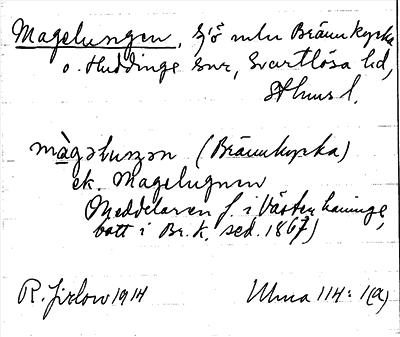 Magelungen, sjö mln Brännkyrka
o. Huddinge snr, Svartlösa hd,
Sthms l.
màgəluŋən (Brännkyrka)
ek. Magelugnen
Meddelaren f. i Västerhaninge,
bott i Br.k. sed. 1867)
R. Jirlow 1914
Ulma 114:1(a)